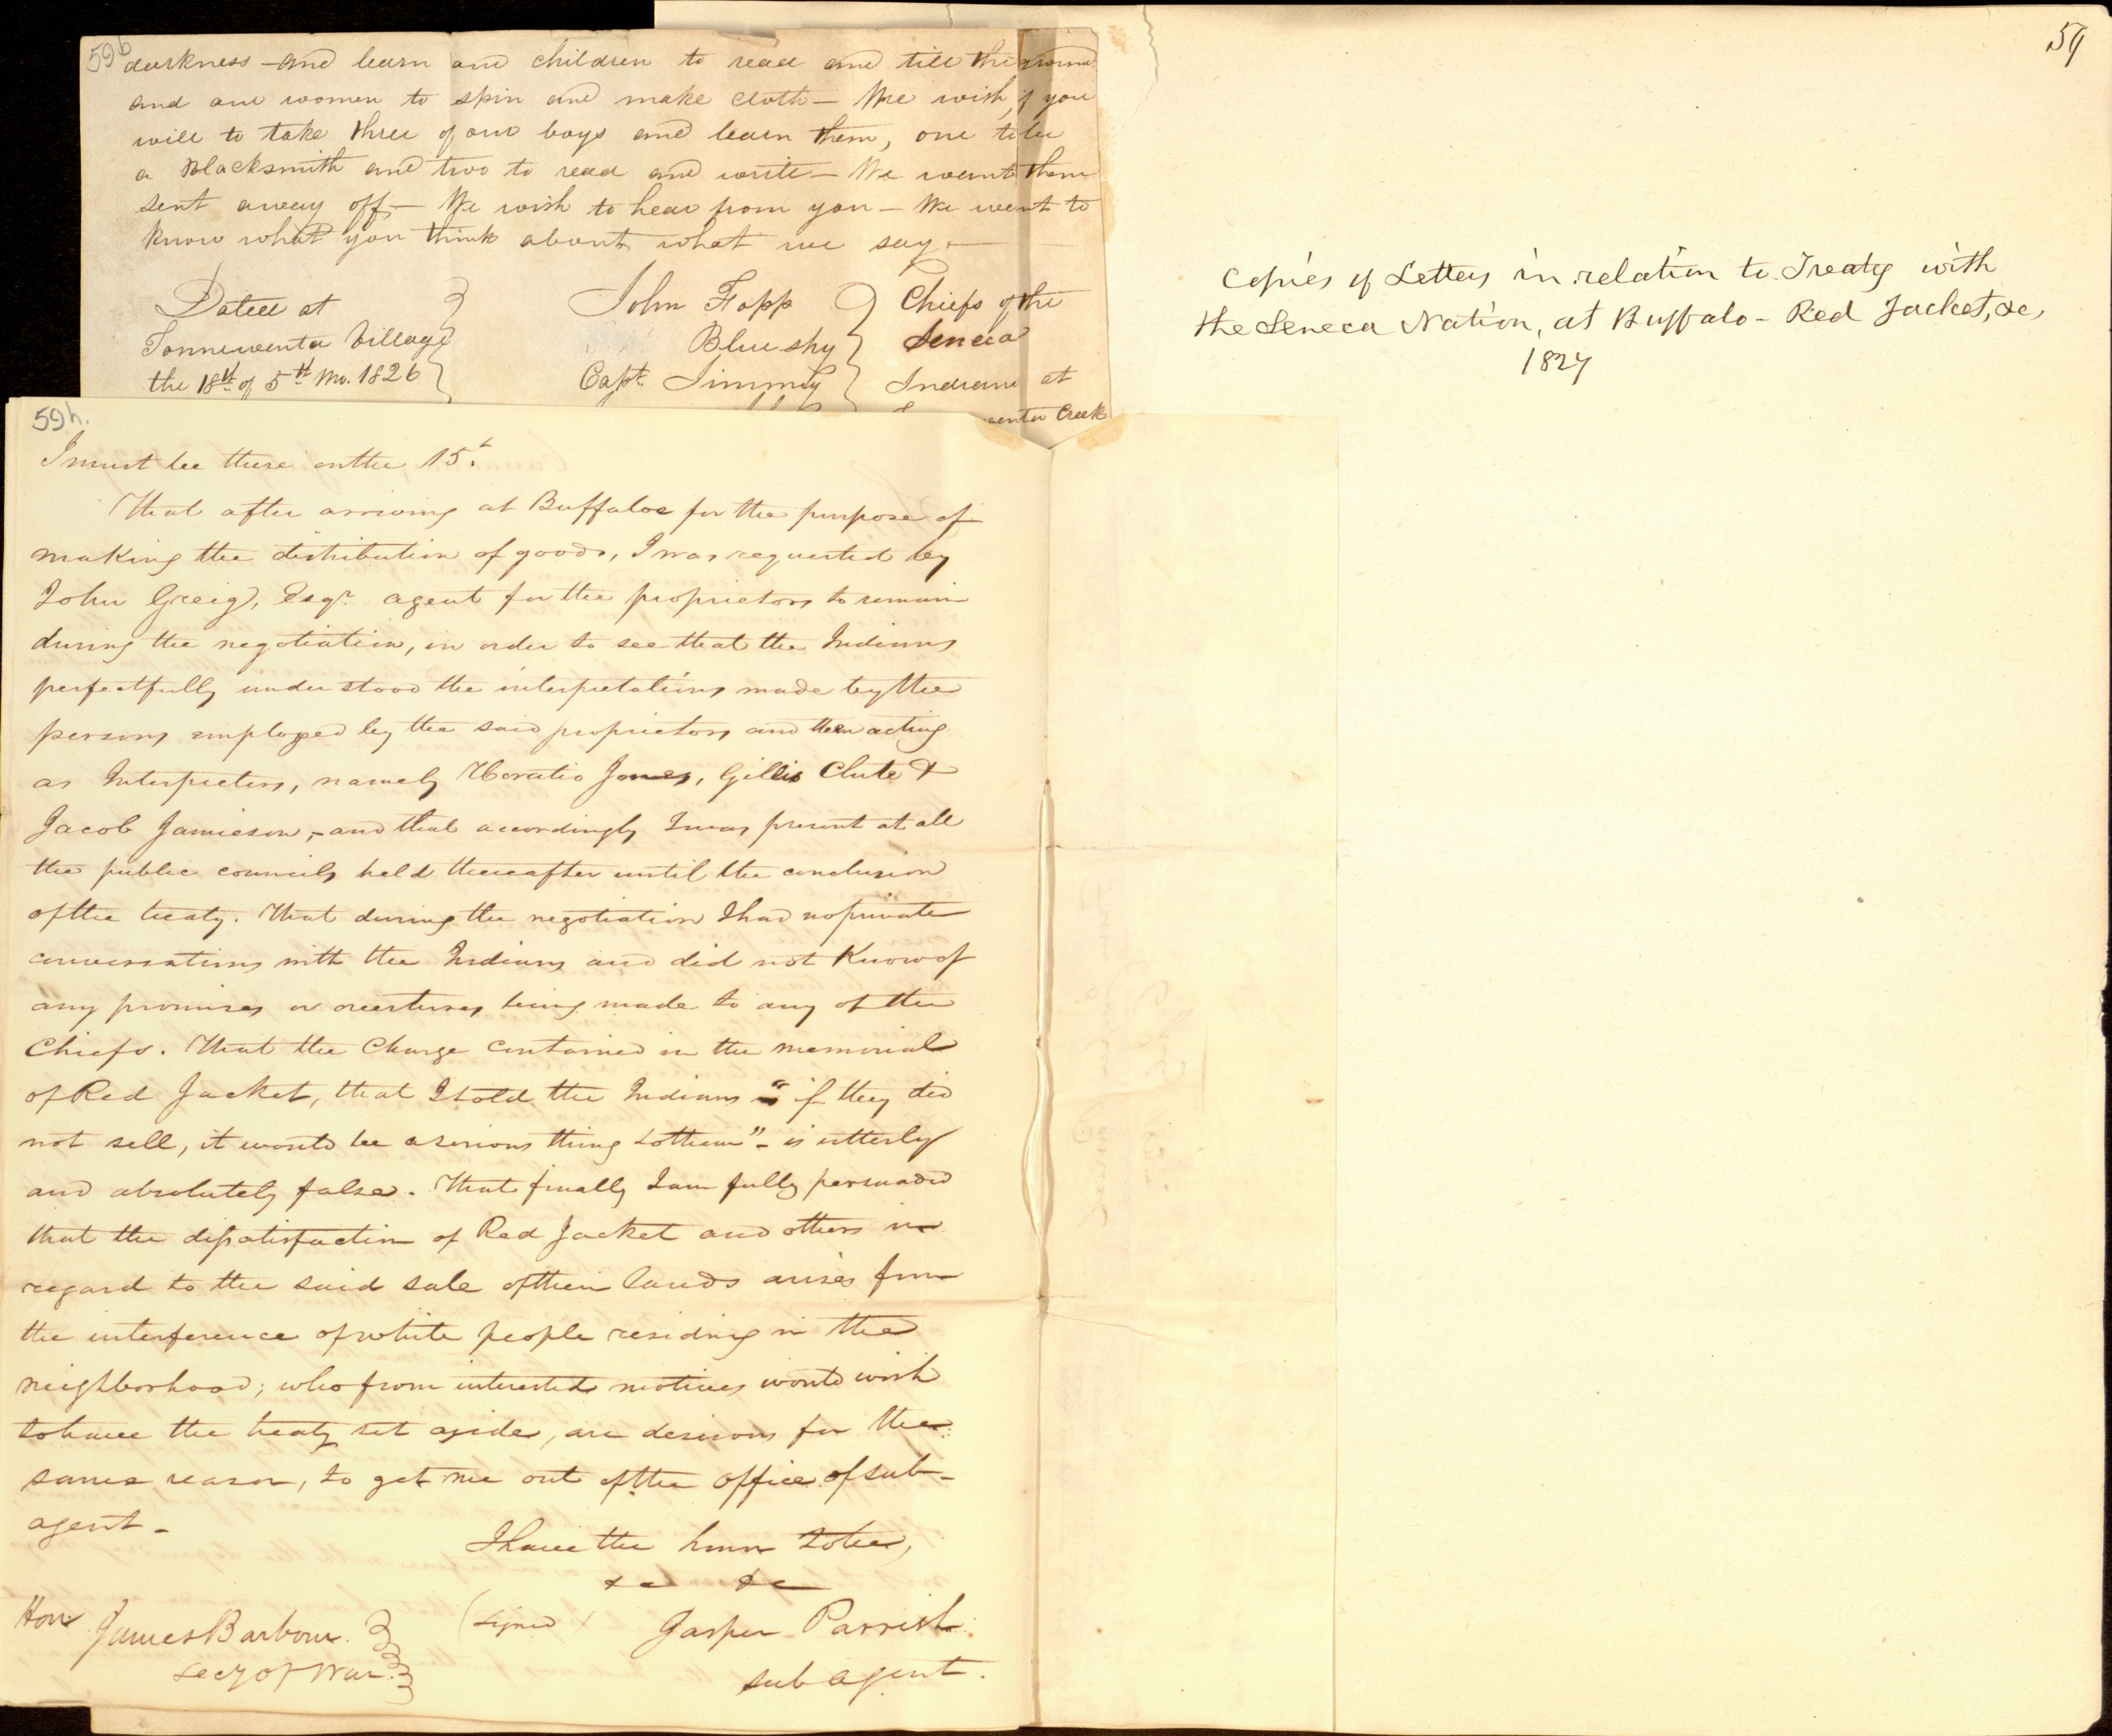 59b
darkness - and learn our children to read and till the ground
and our women to spin and make cloth - We wish, if you
will to take three of our boys and learn them, one to be
a Blacksmith and two to read and write - We want them
sent away off - We wish to hear from you - We want to
know what you think about what we say. -
Dated at
Tonnewenta Village
the 18th of 5th Mo. 1826
John Fopp
Blue sky
Capt. Jimmy
Chiefs of the
Seneca
Indians at
Creek
59h.
I must be there on the 15t.
That after arriving at Buffaloe for the purpose of
making the distribution of goods, I was requested by
John Greig, Esqr. agent for the proprietors to remain
during the negotiation, in order to see that the Indians
perfectfully under stood the interpretations made by the
persons employed by the said proprietors and then acting
as Interpreters, namely Horatio Jones, Gillis Clute &
Jacob Jamieson, - and that accordingly I was present at all
the public councils held thereafter until the conclusion
of the treaty. That during the negotiation I had no private
conversations with the Indians and did not Know of
any promises or overtures being made to any of the
Chiefs. That the Charge contained in the memorial
of Red Jacket, that I told the Indians "if they did
not sell, it would be a serious thing to them" - is utterly
and absolutely false. That finally I am fully persuaded
that the dissatisfaction of Red Jacket and others in
regard to the said sale of their lands arises from
the interference of white people residing in the
neighborhood; who from interested motives would wish
to have the treaty set aside, are desirous for the
same reason, to get me out of the office of sub-
agent -
I have the honor to be,
&c &c
(Signed) Jasper Parrish
sub agent.
Hon James Barbour.
Secy of War.
59
Copies of Letters in relation to Treaty with
the Seneca Nation, at Buffalo - Red Jacket, &c,
1827